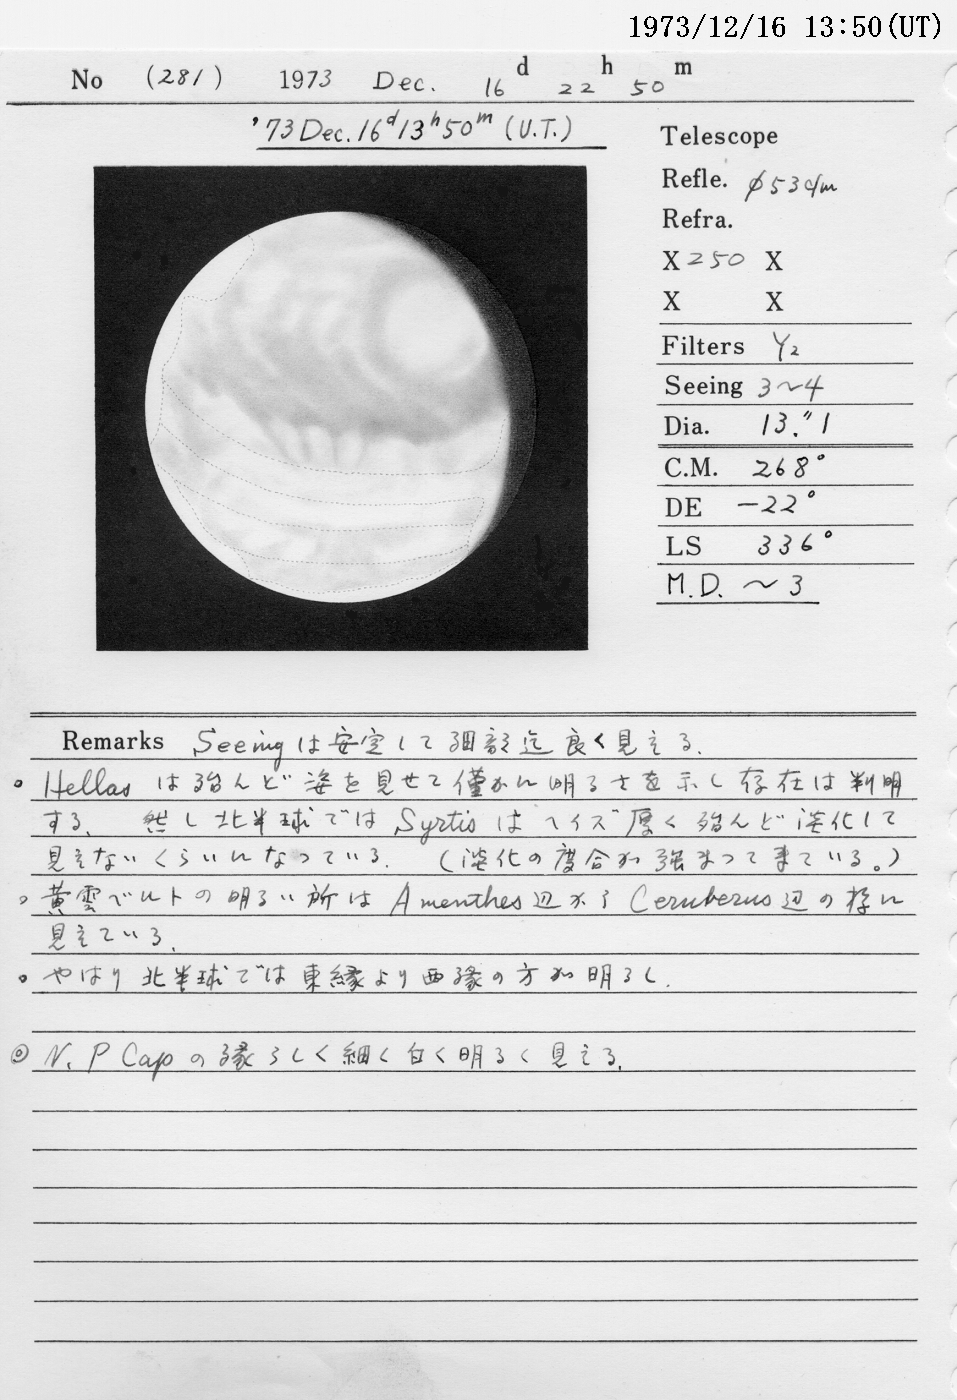 1973/12/16 13:50(UT)
No (281) 1973 Dec. 16 d 22 h 50 m
'73 Dec. 16d 13h 50m (U.T.)
Telescope
Refle. φ53cm
Refra.
X 250 X
X X
Filters Y2
Seeing 3~4
Dia. 13."1
C.M. 268°
DE -22°
LS 336°
M.D. ~3
Remarks Seeingは安定して細部迄良く見える.
。Hellasは殆んど姿を見せて僅かに明るさを示し存在は判明
する. 然し北半球ではSyrtisはヘイズ厚く殆んど淡化して
見えないくらいになっている. (淡化の度合が強まって来ている。)
。黄雲ベルトの明るい所はAmenthes辺からCeruberus辺の様に
見えている.
。やはり北半球では東縁より西縁の方が明るし.
◎ N. P Capの縁らしく細く白く明るく見える.